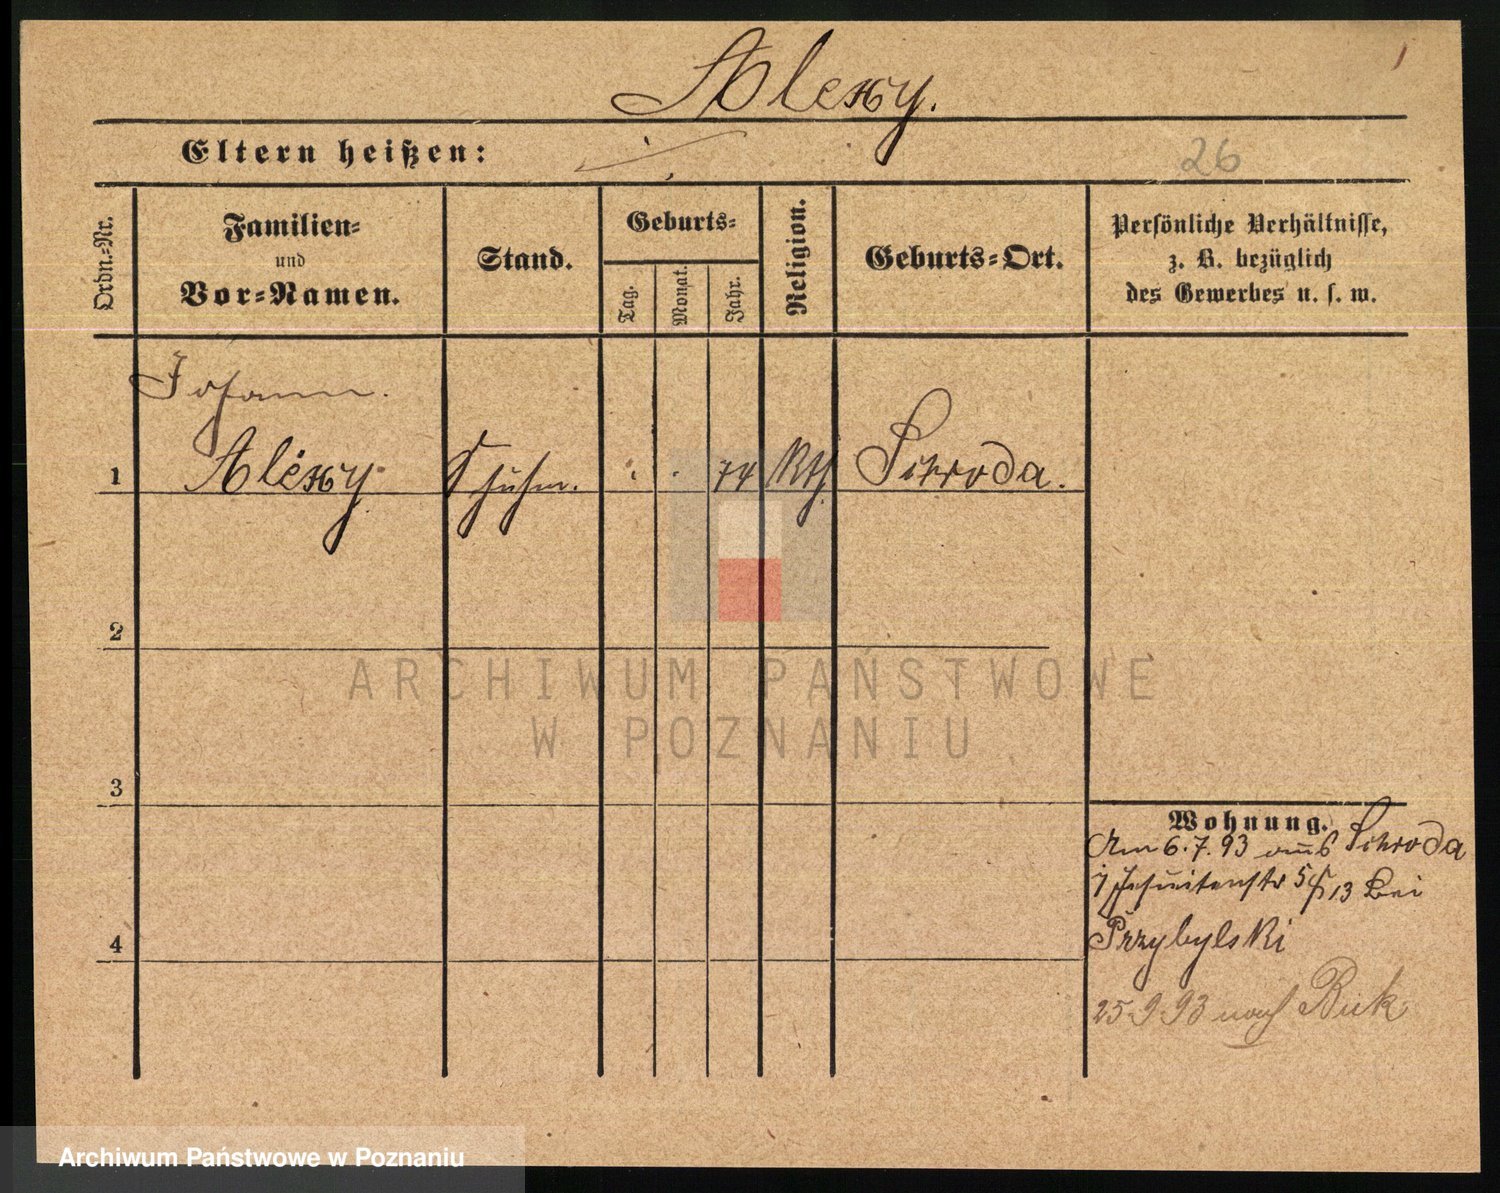 Alexy.
Eltern heißen:
26
Ordn.-Nr.
Familien-
und
Vor-Namen.
Stand.
Geburts-
Tag.
Monat.
Jahr.
Religion.
Geburts-Ort.
Persönliche Verhältnisse,
z. B. bezüglich
des Gewerbes u. s. w.
Johann.
1 Alexy Schuhm. 74 Kth Schroda.
2
3
4
Wohnung.
Am 6.7.93 aus Schroda
Jesuitenstr 5 13 bei
Przybylski
25.9.93 nach Buk
ARCHIWUM PAŃSTWOWE
W POZNANIU
Archiwum Państwowe w Poznaniu